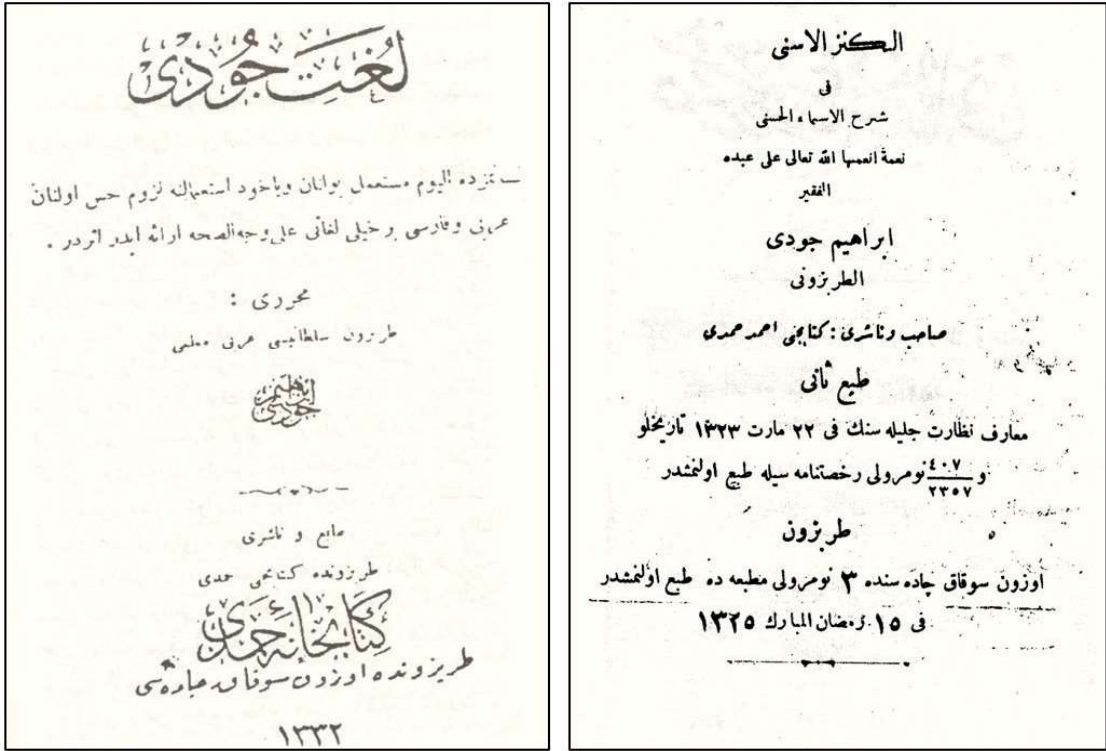 لُغَتِ جُودِى
لسانمزده اليوم مستعمل بولنان وياخود استعمالنه لزوم حس اولنان
عربى وفارسى بر خيلى لغاتى على وجه الصحه ارائه ايدر اثردر .
محررى :
طربزون سلطانيسى عربى معلمى
ابراهيم جودى
طابع و ناشرى
طربزونده كتابجى حمدى
كتابخانهٔ حمدى
طربزونده اوزون سوقاق جاده سى
١٣٣٢
الكنز الاسنى
فى
شرح الاسماء الحسنى
نعمة انعمها الله تعالى على عبده
الفقير
ابراهيم جودى
الطربزونى
صاحب وناشرى : كتابجى احمد حمدى
طبع ثانى
معارف نظارت جليله سنك فى ٢٢ مارت ١٣٢٣ تاريخلو
و ٤٠٧/٢٣٥٧ نومرولى رخصتنامه سيله طبع اولنمشدر
طربزون
اوزون سوقاق جاده سنده ٣ نومرولى مطبعه ده طبع اولنمشدر
فى ١٥ رمضان المبارك ١٣٢٥